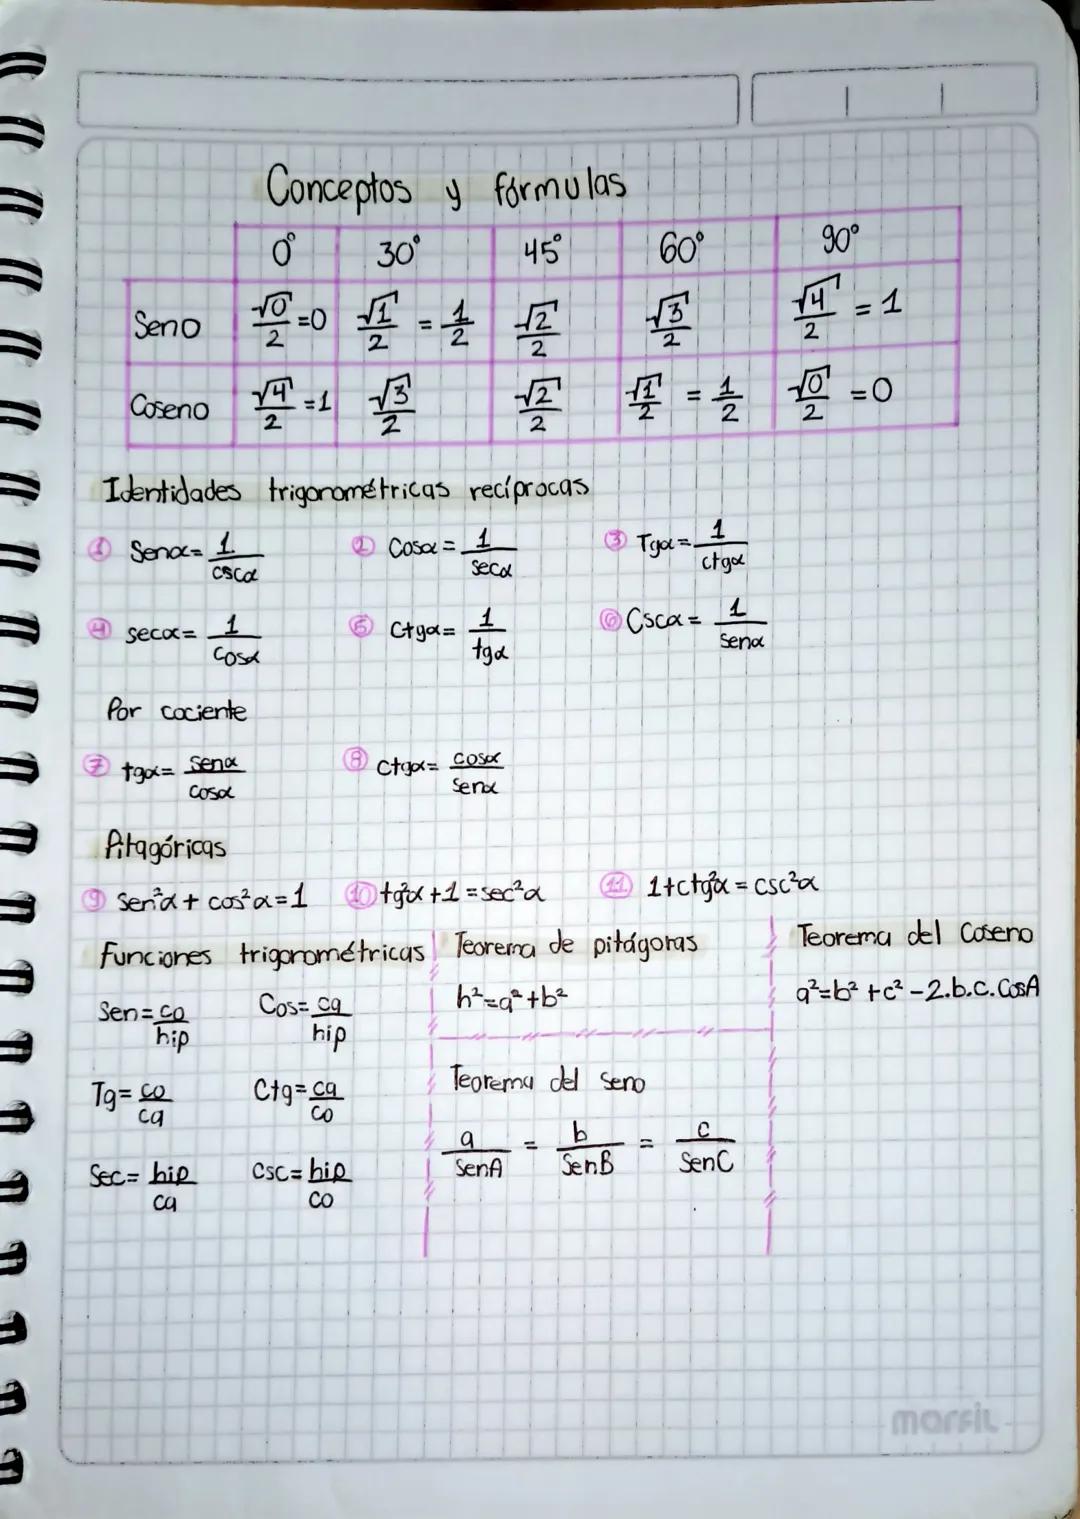 Conceptos y fórmulas
0° 30° 45° 60° 90°
Seno √0/2 =0 √1/2 = 1/2 √2/2 √3/2 √4/2 = 1
Coseno √4/2 =1 √3/2 √2/2 √1/2 = 1/2 √0/2 =0
Identidades trigonométricas recíprocas
① Senα= 1/cscα ② Cosα = 1/secα ③ Tgα= 1/ctgα
④ secα= 1/cosα ⑤ Ctgα= 1/tgα ⑥ Cscα = 1/senα
Por cociente
⑦ tgα= senα/cosα ⑧ Ctgα= cosα/senα
Pitagóricas
⑨ Sen²α + cos²α=1 ⑩ tg²α +1 = sec²α ⑪ 1+ctg²α = csc²α
Funciones trigonométricas
Sen= co/hip Cos= ca/hip
Tg= co/ca Ctg= ca/co
Sec= hip/ca Csc= hip/co
Teorema de pitágoras
h²=a²+b²
Teorema del seno
a/SenA = b/SenB = c/SenC
Teorema del Coseno
a²=b² +c² -2.b.c.CosA
marfil